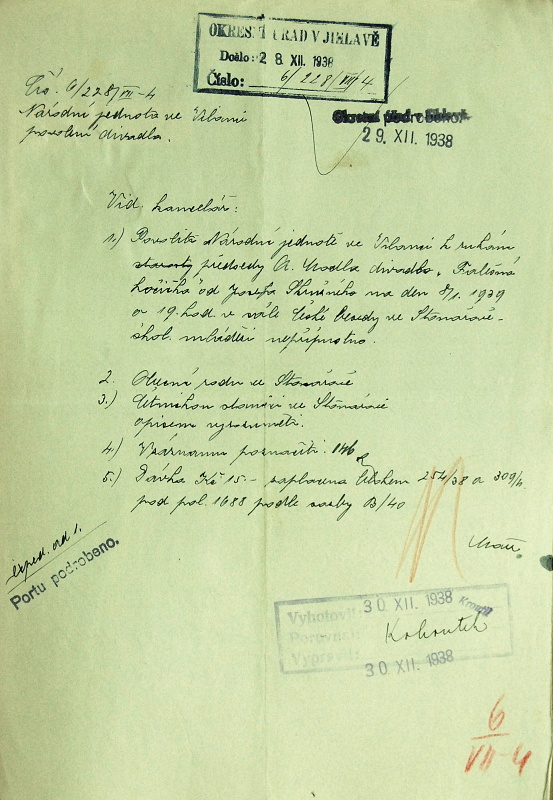 OKRESNÍ ÚŘAD V JIHLAVĚ
Došlo: 28. XII. 1938
Číslo: 6/228/VII/4
29. XII. 1938
Čís. 6/228/VII-4
Národní jednota ve
povolení divadla.
Vid. kancelář:
1.) Povoliti Národní jednotě ve k rukám
starosty předsedy A. divadlo „
kočička" od Josefa na den 8/1. 1939
o 19. hod. v sále České Besedy ve Stonařově -
škol. mládeži nepřípustno.
2. Obecná rada ve Stonařově
3.) Četnickou stanici ve Stonařově
opisem vyrozuměti.
4.) Vzájemnu poznačiti. 146
5.) Dávka Kč 15.- zaplacena 254/38 a 309/
pod pol. 1688 podle sazby B/40
exped. ad 1.
Portu podrobeno.
Vyhotovil: 30. XII. 1938
Porovnal: Kohoutek
Vypravil: 30. XII. 1938
6
VII-4